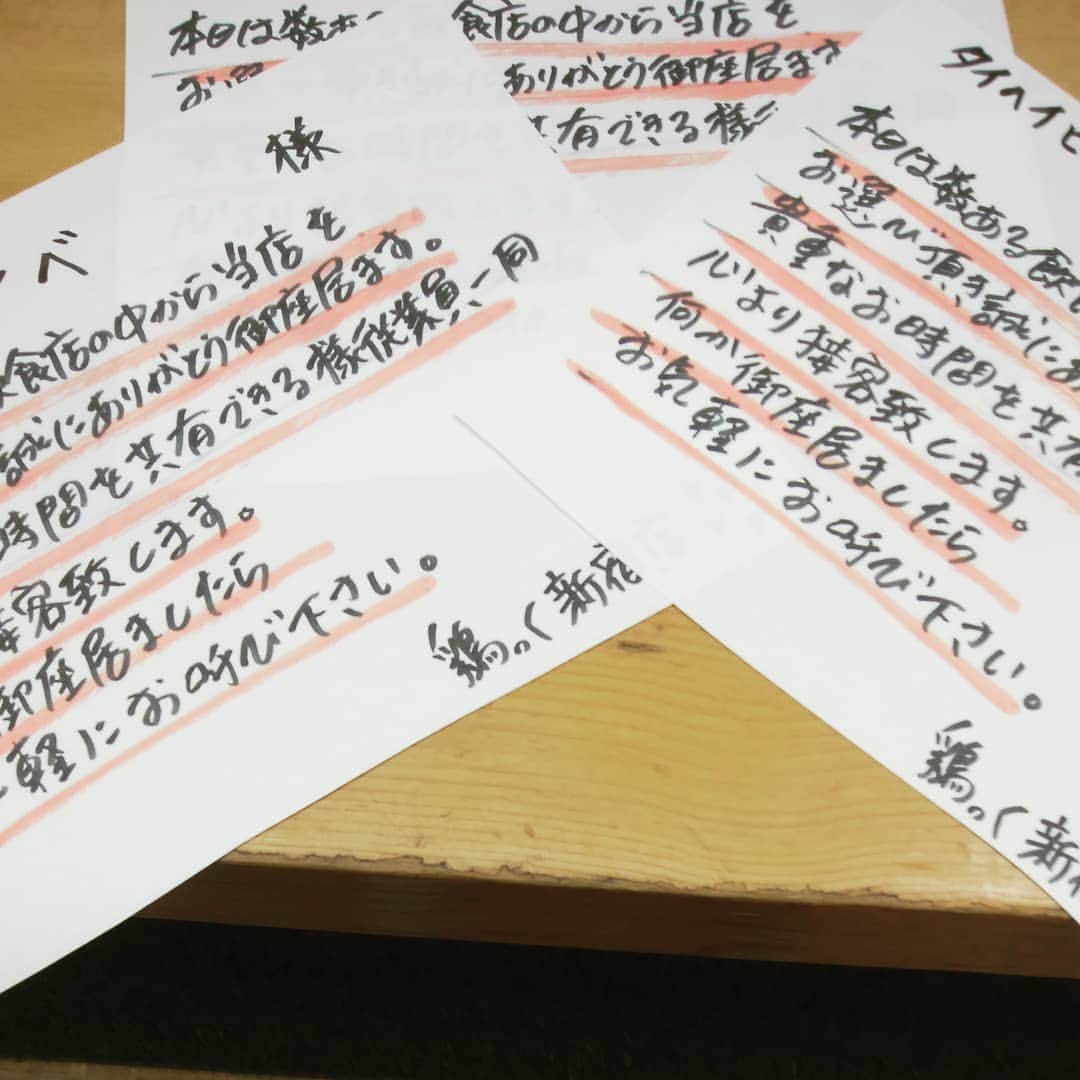 本日は数
食店の中から当店を
ありがとう御座居ます
共有できる様に
様
ベ
食店の中から当店を
誠にありがとう御座居ます。
時間を共有できる様従業員一同
接客致します。
御座居ましたら
軽にお呼び下さい。
鶏っく新宿
タイヘイ
本日は数ある飲
お選び頂き誠にあ
貴重なお時間を共有
心より接客致します。
何か御座居ましたら
お気軽にお呼び下さい。
鶏っく新